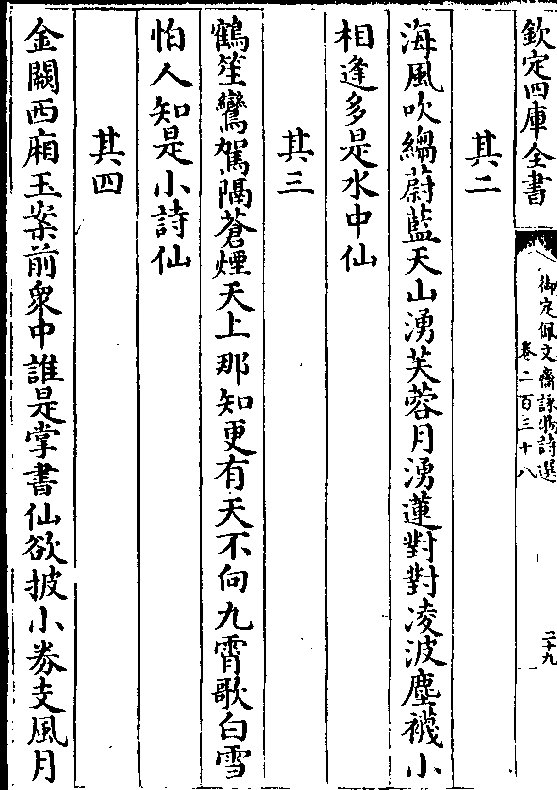 欽定四庫全書
御定佩文齋詠物詩選
卷二百三十八
二十九
其二
海風吹縐蔚藍天山湧芙蓉月湧蓮對對凌波塵襪小
相逢多是水中仙
其三
鶴笙鸞駕隔蒼煙天上那知更有天不向九霄歌白雪
怕人知是小詩仙
其四
金闕西廂玉案前衆中誰是掌書仙欲披小券支風月